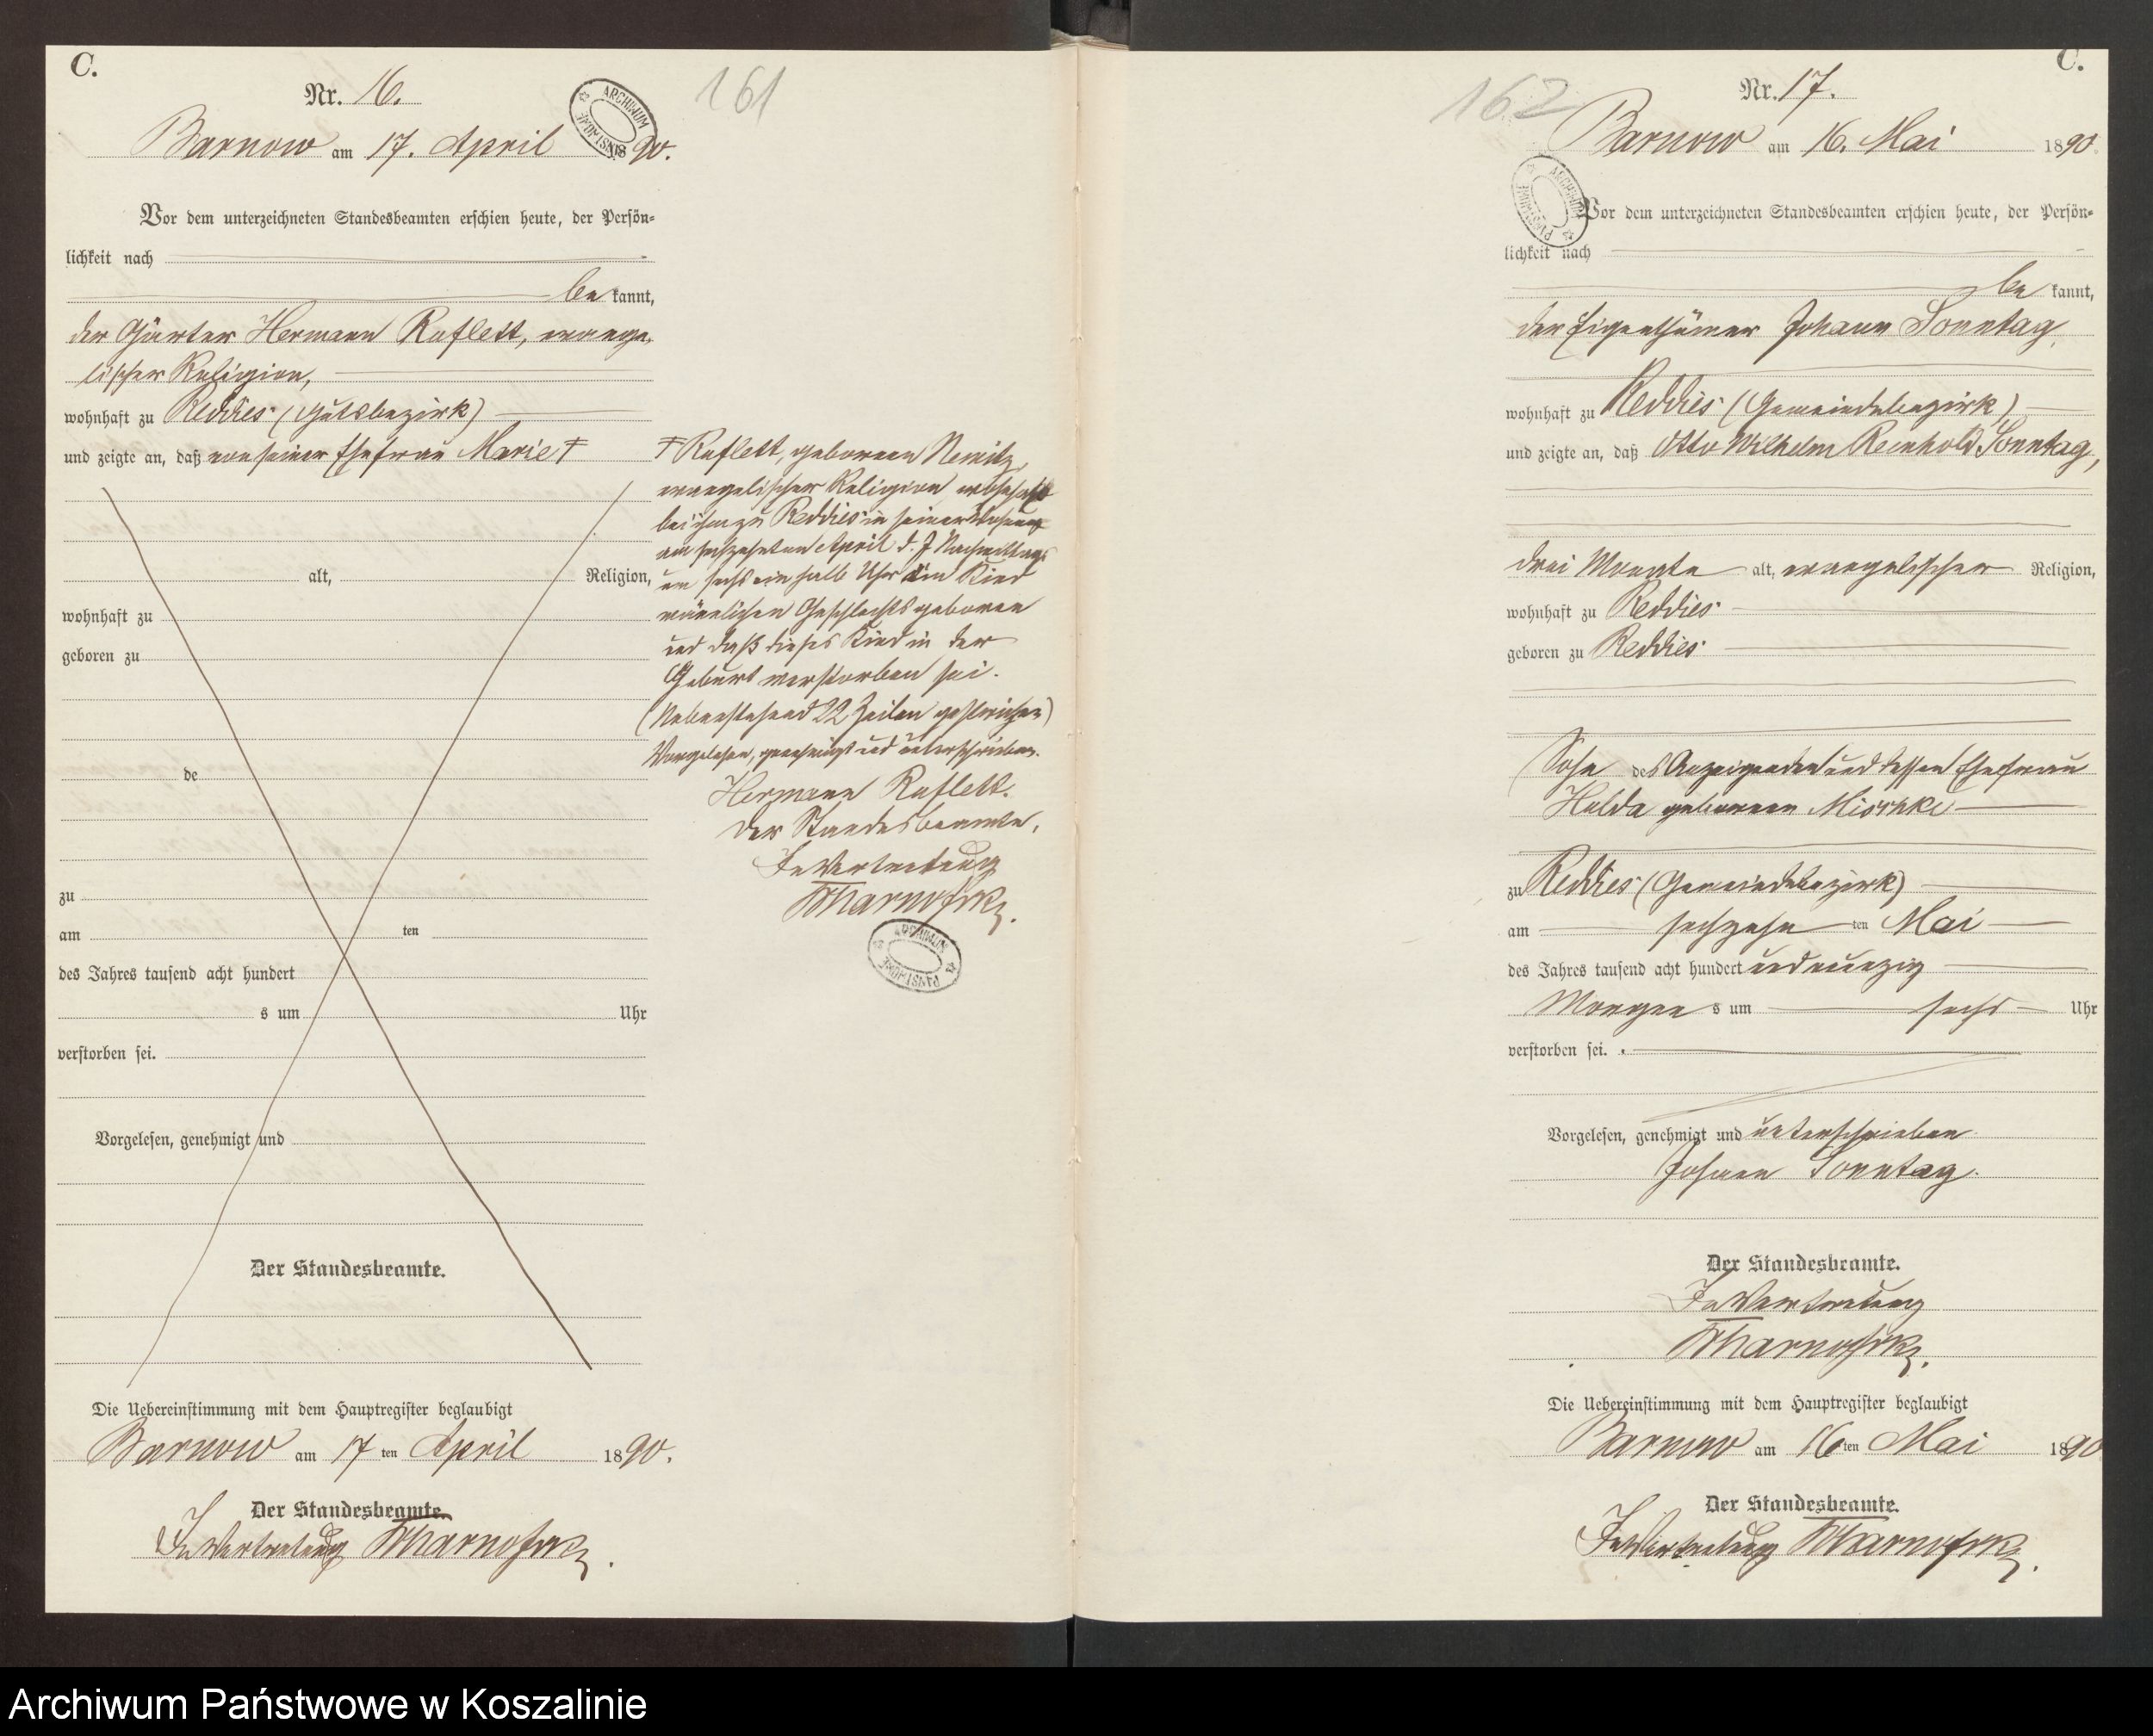 C.
Nr. 16.
161
ARCHIWUM PAŃSTWOWE
Barnow am 17. April 90.
Vor dem unterzeichneten Standesbeamten erschien heute, der Persön-
lichkeit nach
be kannt,
der Gärter Hermann Raflett, evange-
lischer Religion,
wohnhaft zu Reddies (Gutsbezirk)
und zeigte an, daß von seiner Ehefrau Marie ┼
┼ Raflett, geborenen Nemitz,
evangelischer Religion wohnhaft
bei ihm zu Reddies in seiner Wohnung
am sechszehnten April d. J Nachmittags
um sechs ein halb Uhr ein Kind
männlichen Geschlechts geboren
und daß dieses Kind in der
Geburt verstorben sei.
(Nebenstehend 22 Zeilen gestrichen)
Vorgelesen, genehmigt und unterschrieben.
Hermann Raflett.
Der Standesbeamte,
In Vertretung
ARCHIWUM PAŃSTWOWE
alt, Religion,
wohnhaft zu
geboren zu
de
zu
am ten
des Jahres tausend acht hundert
s um Uhr
verstorben sei.
Vorgelesen, genehmigt und
Der Standesbeamte.
Die Uebereinstimmung mit dem Hauptregister beglaubigt
Barnow am 17 ten April 1890.
Der Standesbeamte.
In Vertretung
C.
162
Nr. 17.
Barnow am 16. Mai 1890
ARCHIWUM PAŃSTWOWE
Vor dem unterzeichneten Standesbeamten erschien heute, der Persön-
lichkeit nach
be kannt,
der Eigenthümer Johann Sonntag,
wohnhaft zu Reddies (Gemeindebezirk)
und zeigte an, daß Otto Wilhelm Reinhold Sonntag,
drei Monate alt, evangelischer Religion,
wohnhaft zu Reddies
geboren zu Reddies
Sohn des Anzeigenden und dessen Ehefrau
Hulda geborenen Mischke
zu Reddies (Gemeindebezirk)
am sechzehn ten Mai
des Jahres tausend acht hundert und neunzig
Morgen s um sechs Uhr
verstorben sei.
Vorgelesen, genehmigt und unterschrieben
Johann Sonntag.
Der Standesbeamte.
In Vertretung
Die Uebereinstimmung mit dem Hauptregister beglaubigt
Barnow am 16 ten Mai 1890
Der Standesbeamte.
In Vertretung
Archiwum Państwowe w Koszalinie